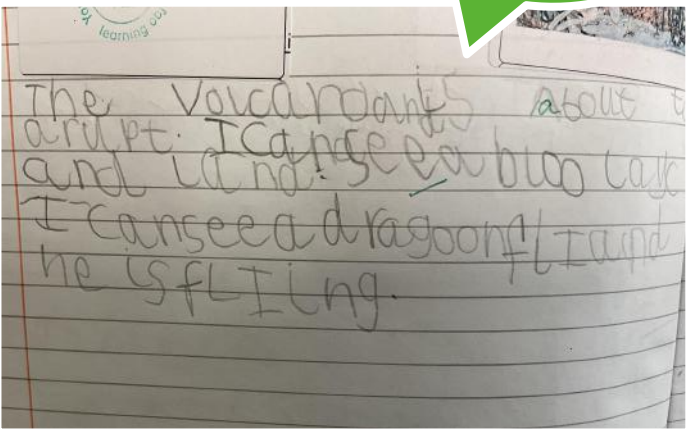 learning
The about
arupt. I can see a bloo
and land.
I can see a dragoonflI and
he is flIing.